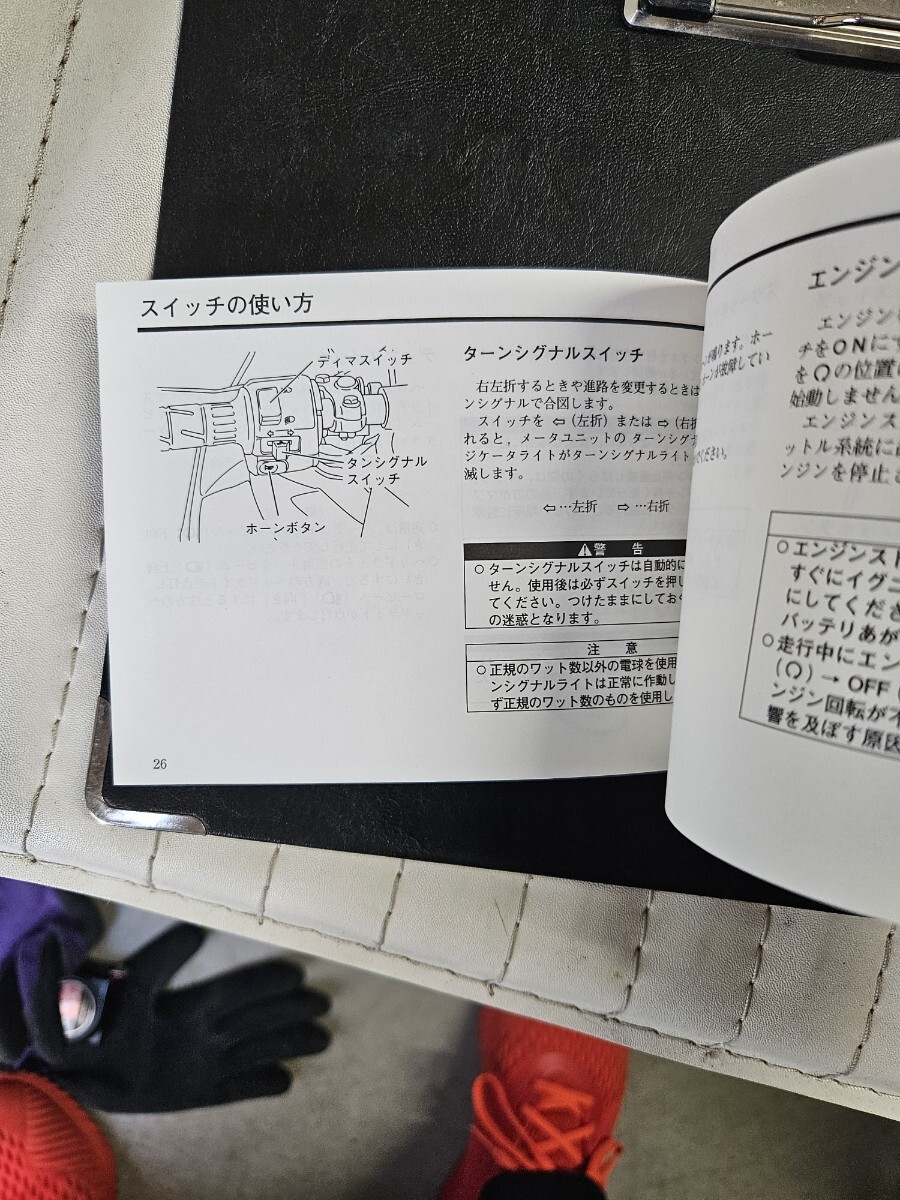 スイッチの使い方
ディマスイッチ
タンシグナル
スイッチ
ホーンボタン
ターンシグナルスイッチ
右左折するときや進路を変更するときは
ンシグナルで合図します。
スイッチを ⇦ (左折) または ⇨ (右折
れると，メータユニットの ターンシグナ
ジケータライトがターンシグナルライト
滅します。
⇦…左折 ⇨…右折
⚠警 告
○ ターンシグナルスイッチは自動的に
せん。使用後は必ずスイッチを押し
てください。つけたままにしておく
の迷惑となります。
注 意
○ 正規のワット数以外の電球を使用
ンシグナルライトは正常に作動し
ず正規のワット数のものを使用し
26
鳴ります。ホー
ーンが故障してい
ください。
エンジン
エンジン
チをONにす
を○の位置に
始動しません
エンジンス
ットル系統に
ンジンを停止
○エンジンスト
すぐにイグニ
にしてくださ
バッテリあが
○走行中にエン
(○) → OFF (
ンジン回転が不
響を及ぼす原因